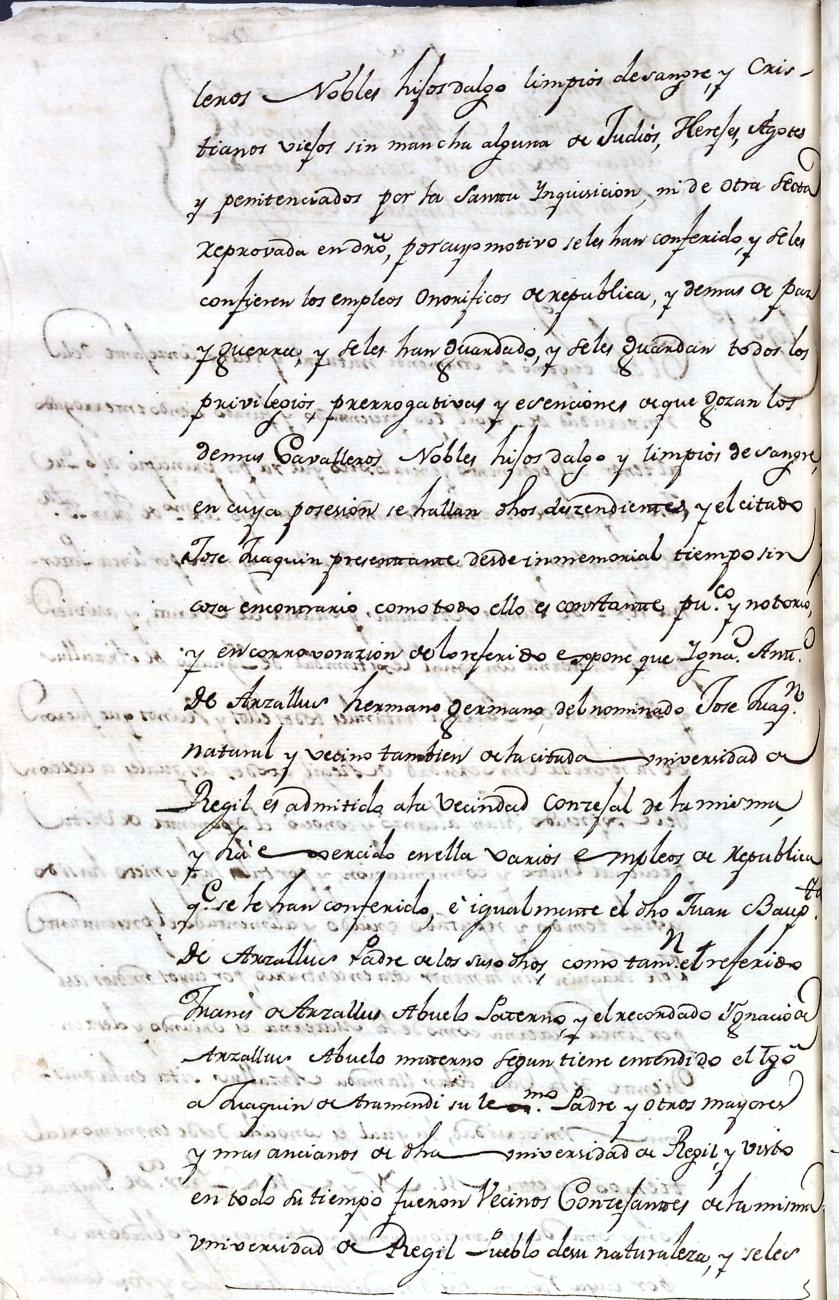 leros Nobles hijosdalgo limpios de sangre, y Cris-
tianos viejos sin mancha alguna de Judios, Herejes, Agotes
y penitenciados por la Santa Inquisicion, ni de otra Secta
reprovada en dro, por cuyo motivo se les han conferido, y se les
confieren los empleos Onorificos de republica, y demas de paz
y guerra, y se les han guardado, y se les guardan todos los
privilegios, prerrogativas y esenciones de que gozan los
demas Cavalleros Nobles hijosdalgo y limpios de sangre,
en cuya posesion se hallan dhos deszendientes, y el citado
Jose Juaquin presenttante desde inmemorial tiempo sin
cosa encontrario, como todo ello es constante pu.co y notorio,
y en corrovorazion de lo referido expone que Igna.o Antt.o
De Arzallus hermano germano, del nominado Jose Juaq.n
natural y vecino tambien de la citada universidad de
Regil es admitido, a la Vecindad Conzejal de la misma,
y há exercido en ella varios empleos de republica
q.e se le han conferido, e igualmente el dho Juan Baup.ta
De Arzallus Padre de los suso dhos, como tam.n el referido
Juanes de Arzallus Abuelo Paterno, y el recordado Ignacio de
Arzallus Abuelo materno segun tiene entendido el Tgo
a Juaquin de Aramendi su le mo. Padre y otros mayores
y mas ancianos de dha universidad de Regil, y visto
en todo su tiempo fueron Vecinos Conzejantes de la misma
universidad de Regil Pueblo de su naturaleza, y se les